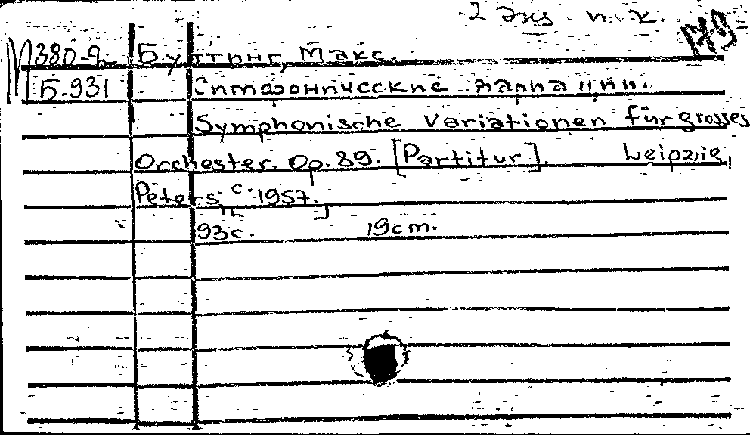 2 экз. н. к.
М380-9 Буттинг, Макс.
Б.931 Симфонические вариации.
Symphonische Variationen für grosses
Orchester. Op. 89. [Partitur]. Leipzig,
Peters, c. 1957.
93с. 19cm.